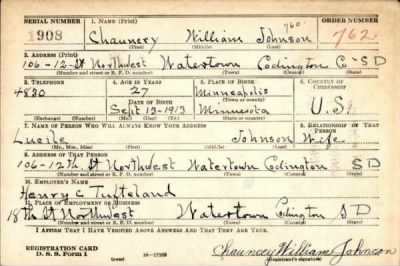 SERIAL NUMBER 1. NAME (Print) ORDER NUMBER
1908 Chauncery William Johnson 760 762
(First) (Middle) (Last)
2. ADDRESS (Print)
106-12-St Northwest Watertown Codington Co SD
(Number and street or R. F. D. number) (Town) (County) (State)
3. TELEPHONE 4. AGE IN YEARS 5. PLACE OF BIRTH 6. COUNTRY OF CITIZENSHIP
4830 27 Minneapolis
(Town or county)
DATE OF BIRTH
Sept 13-1913 Minnesota U.S.
(Exchange) (Number) (Mo.) (Day) (Yr.) (State or country)
7. NAME OF PERSON WHO WILL ALWAYS KNOW YOUR ADDRESS 8. RELATIONSHIP OF THAT PERSON
Lucile Johnson Wife
(Mr., Mrs., Miss) (First) (Middle) (Last)
9. ADDRESS OF THAT PERSON
106-12th St Northwest Watertown Codington SD
(Number and street or R. F. D. number) (Town) (County) (State)
10. EMPLOYER'S NAME
Henry C Tufteland
11. PLACE OF EMPLOYMENT OR BUSINESS
18th St Northwest Watertown Codington SD
(Number and street or R. F. D. number) (Town) (County) (State)
I AFFIRM THAT I HAVE VERIFIED ABOVE ANSWERS AND THAT THEY ARE TRUE.
REGISTRATION CARD
D. S. S. Form 1 (over) 16-17105
Chauncey William Johnson
(Registrant's signature)